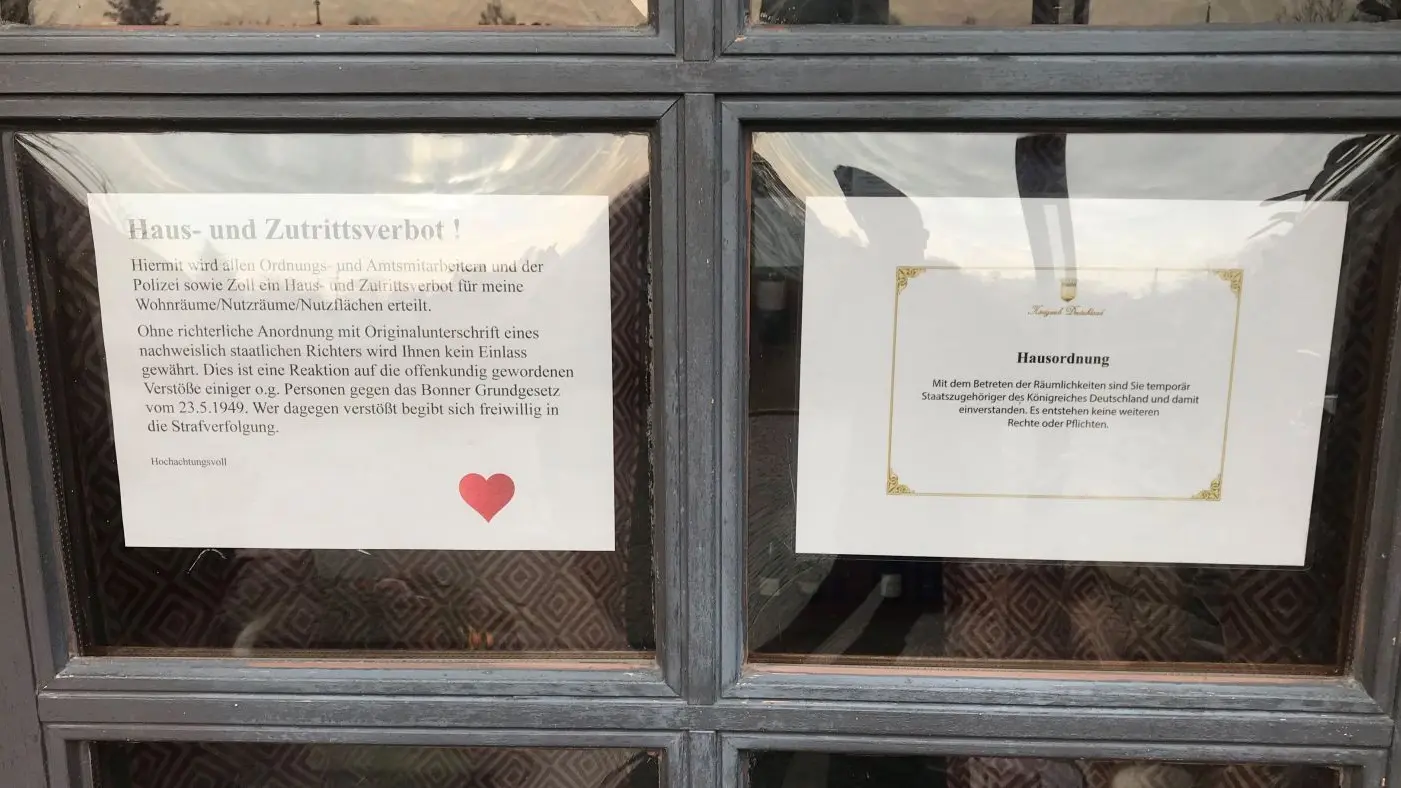 Haus- und Zutrittsverbot !
Hiermit wird allen Ordnungs- und Amtsmitarbeitern und der
Polizei sowie Zoll ein Haus- und Zutrittsverbot für meine
Wohnräume/Nutzräume/Nutzflächen erteilt.
Ohne richterliche Anordnung mit Originalunterschrift eines
nachweislich staatlichen Richters wird Ihnen kein Einlass
gewährt. Dies ist eine Reaktion auf die offenkundig gewordenen
Verstöße einiger o.g. Personen gegen das Bonner Grundgesetz
vom 23.5.1949. Wer dagegen verstößt begibt sich freiwillig in
die Strafverfolgung.
Hochachtungsvoll
Königreich Deutschland
Hausordnung
Mit dem Betreten der Räumlichkeiten sind Sie temporär
Staatszugehöriger des Königreiches Deutschland und damit
einverstanden. Es entstehen keine weiteren
Rechte oder Pflichten.